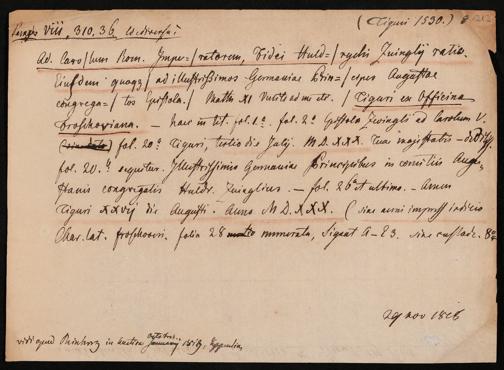 Panzer VIII, 310, 36
(Tiguri 1530.)
Ad Caro/lum Rom. Impe-/ratorem, Fidei Huld-/rychi Zuinglij ratio.
Eiusdem quoq3 / ad illustrissimos Germaniae Prin-/cipes Augustae
congrega-/tos Epistola. / Matth XI Venite ad me etc. / Tiguri ex Officina
Froschoviana. – haec in tit. fol. 1a. fol. 2a Epistola Zwingli ad Carolum V.
fol. 20a Tiguri, tertio die Julij. M.D.XXX. Tuae majestatis – deditiss.
fol. 20.b sequitur. Illustrissimis Germaniae Principibus in comitiis Augu-
stanis congregatis Huldr. Zuinglius. – fol. 26a et ultimo. – Amen
Tiguri XXvij die Augusti. Anno M.D.XXX. (sine anni impressi indicio
Char. lat. Froschoveri. folia 28 numerata, Signat A–E3. sine custode. 8o
29 nov 1828
vidi apud in auctione octobri 1819,